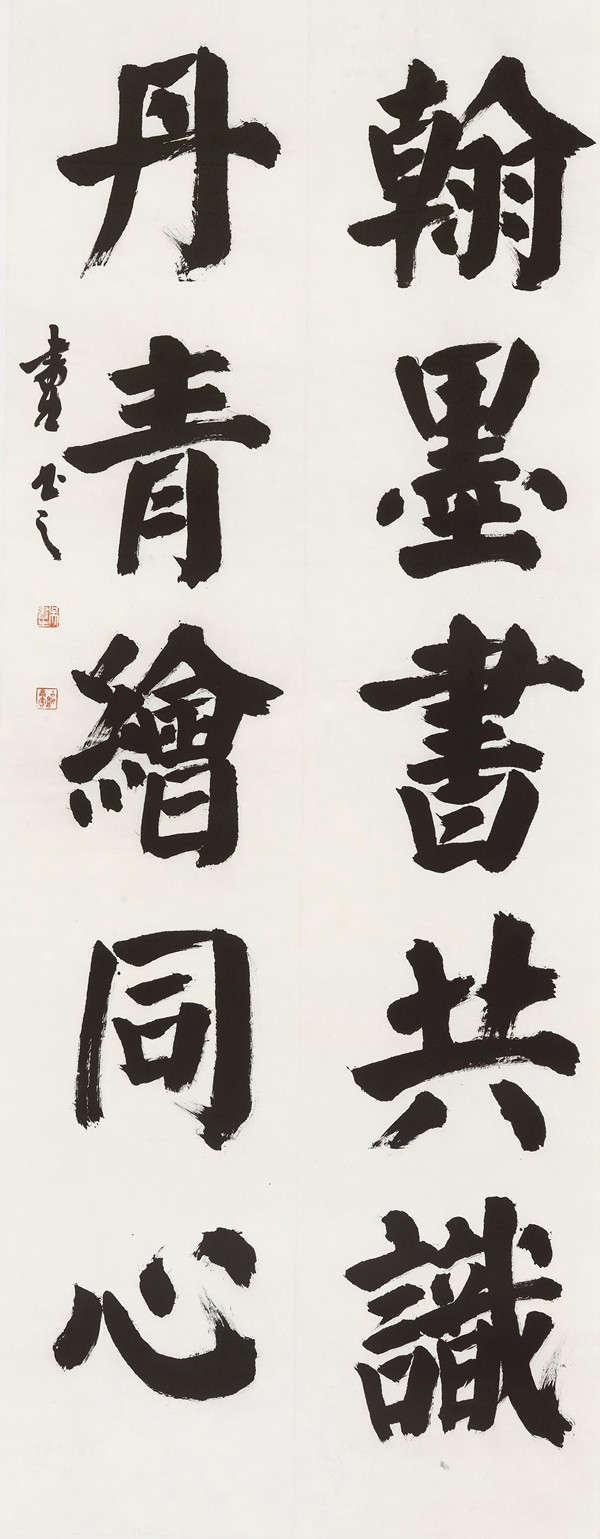 翰墨書共識
丹青繪同心